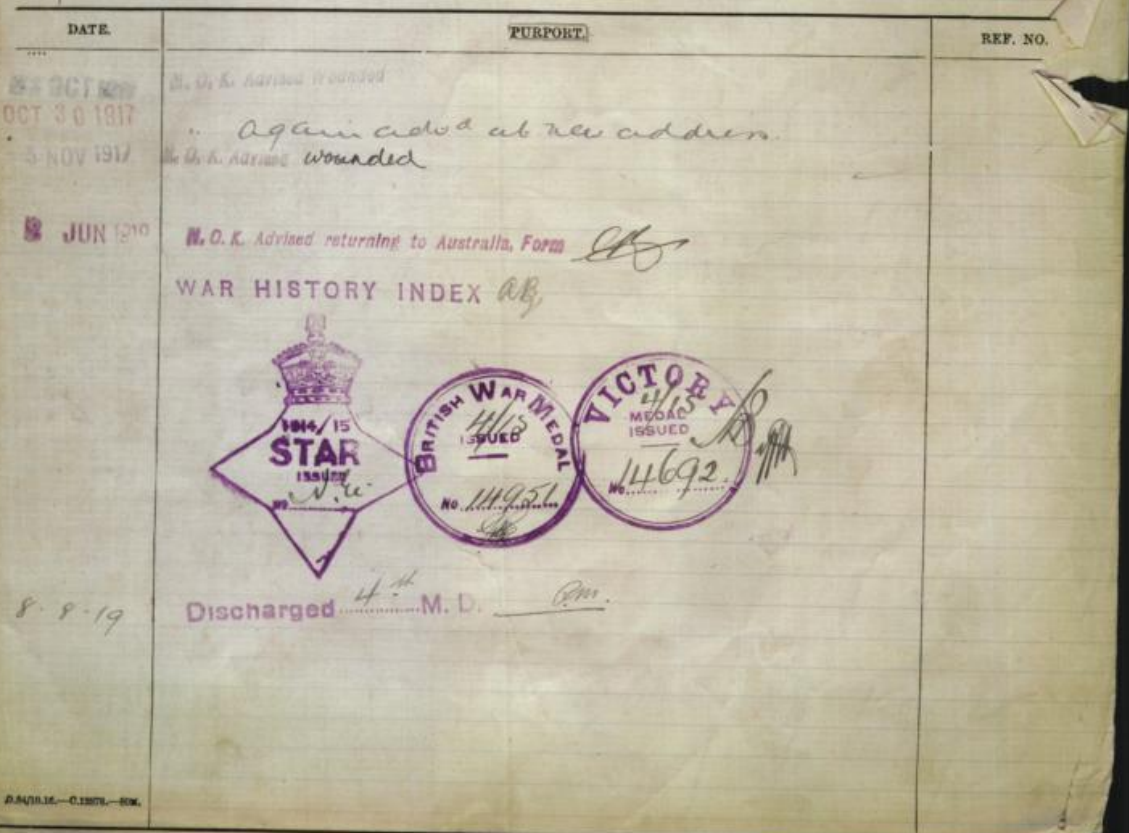 DATE. PURPORT. REF. NO.
N. O. K. Advised Wounded
OCT 30 1917
" again advd at new address.
5 NOV 1917 N. O. K. Advised wounded
JUN 1919 N. O. K. Advised returning to Australia, Form
WAR HISTORY INDEX
1914/15
STAR
ISSUED
No
BRITISH WAR MEDAL
4/15
ISSUED
No. 14951
VICTORY
4/15
MEDAL
ISSUED
No. 14692.
8-8-19 Discharged 4th M. D.